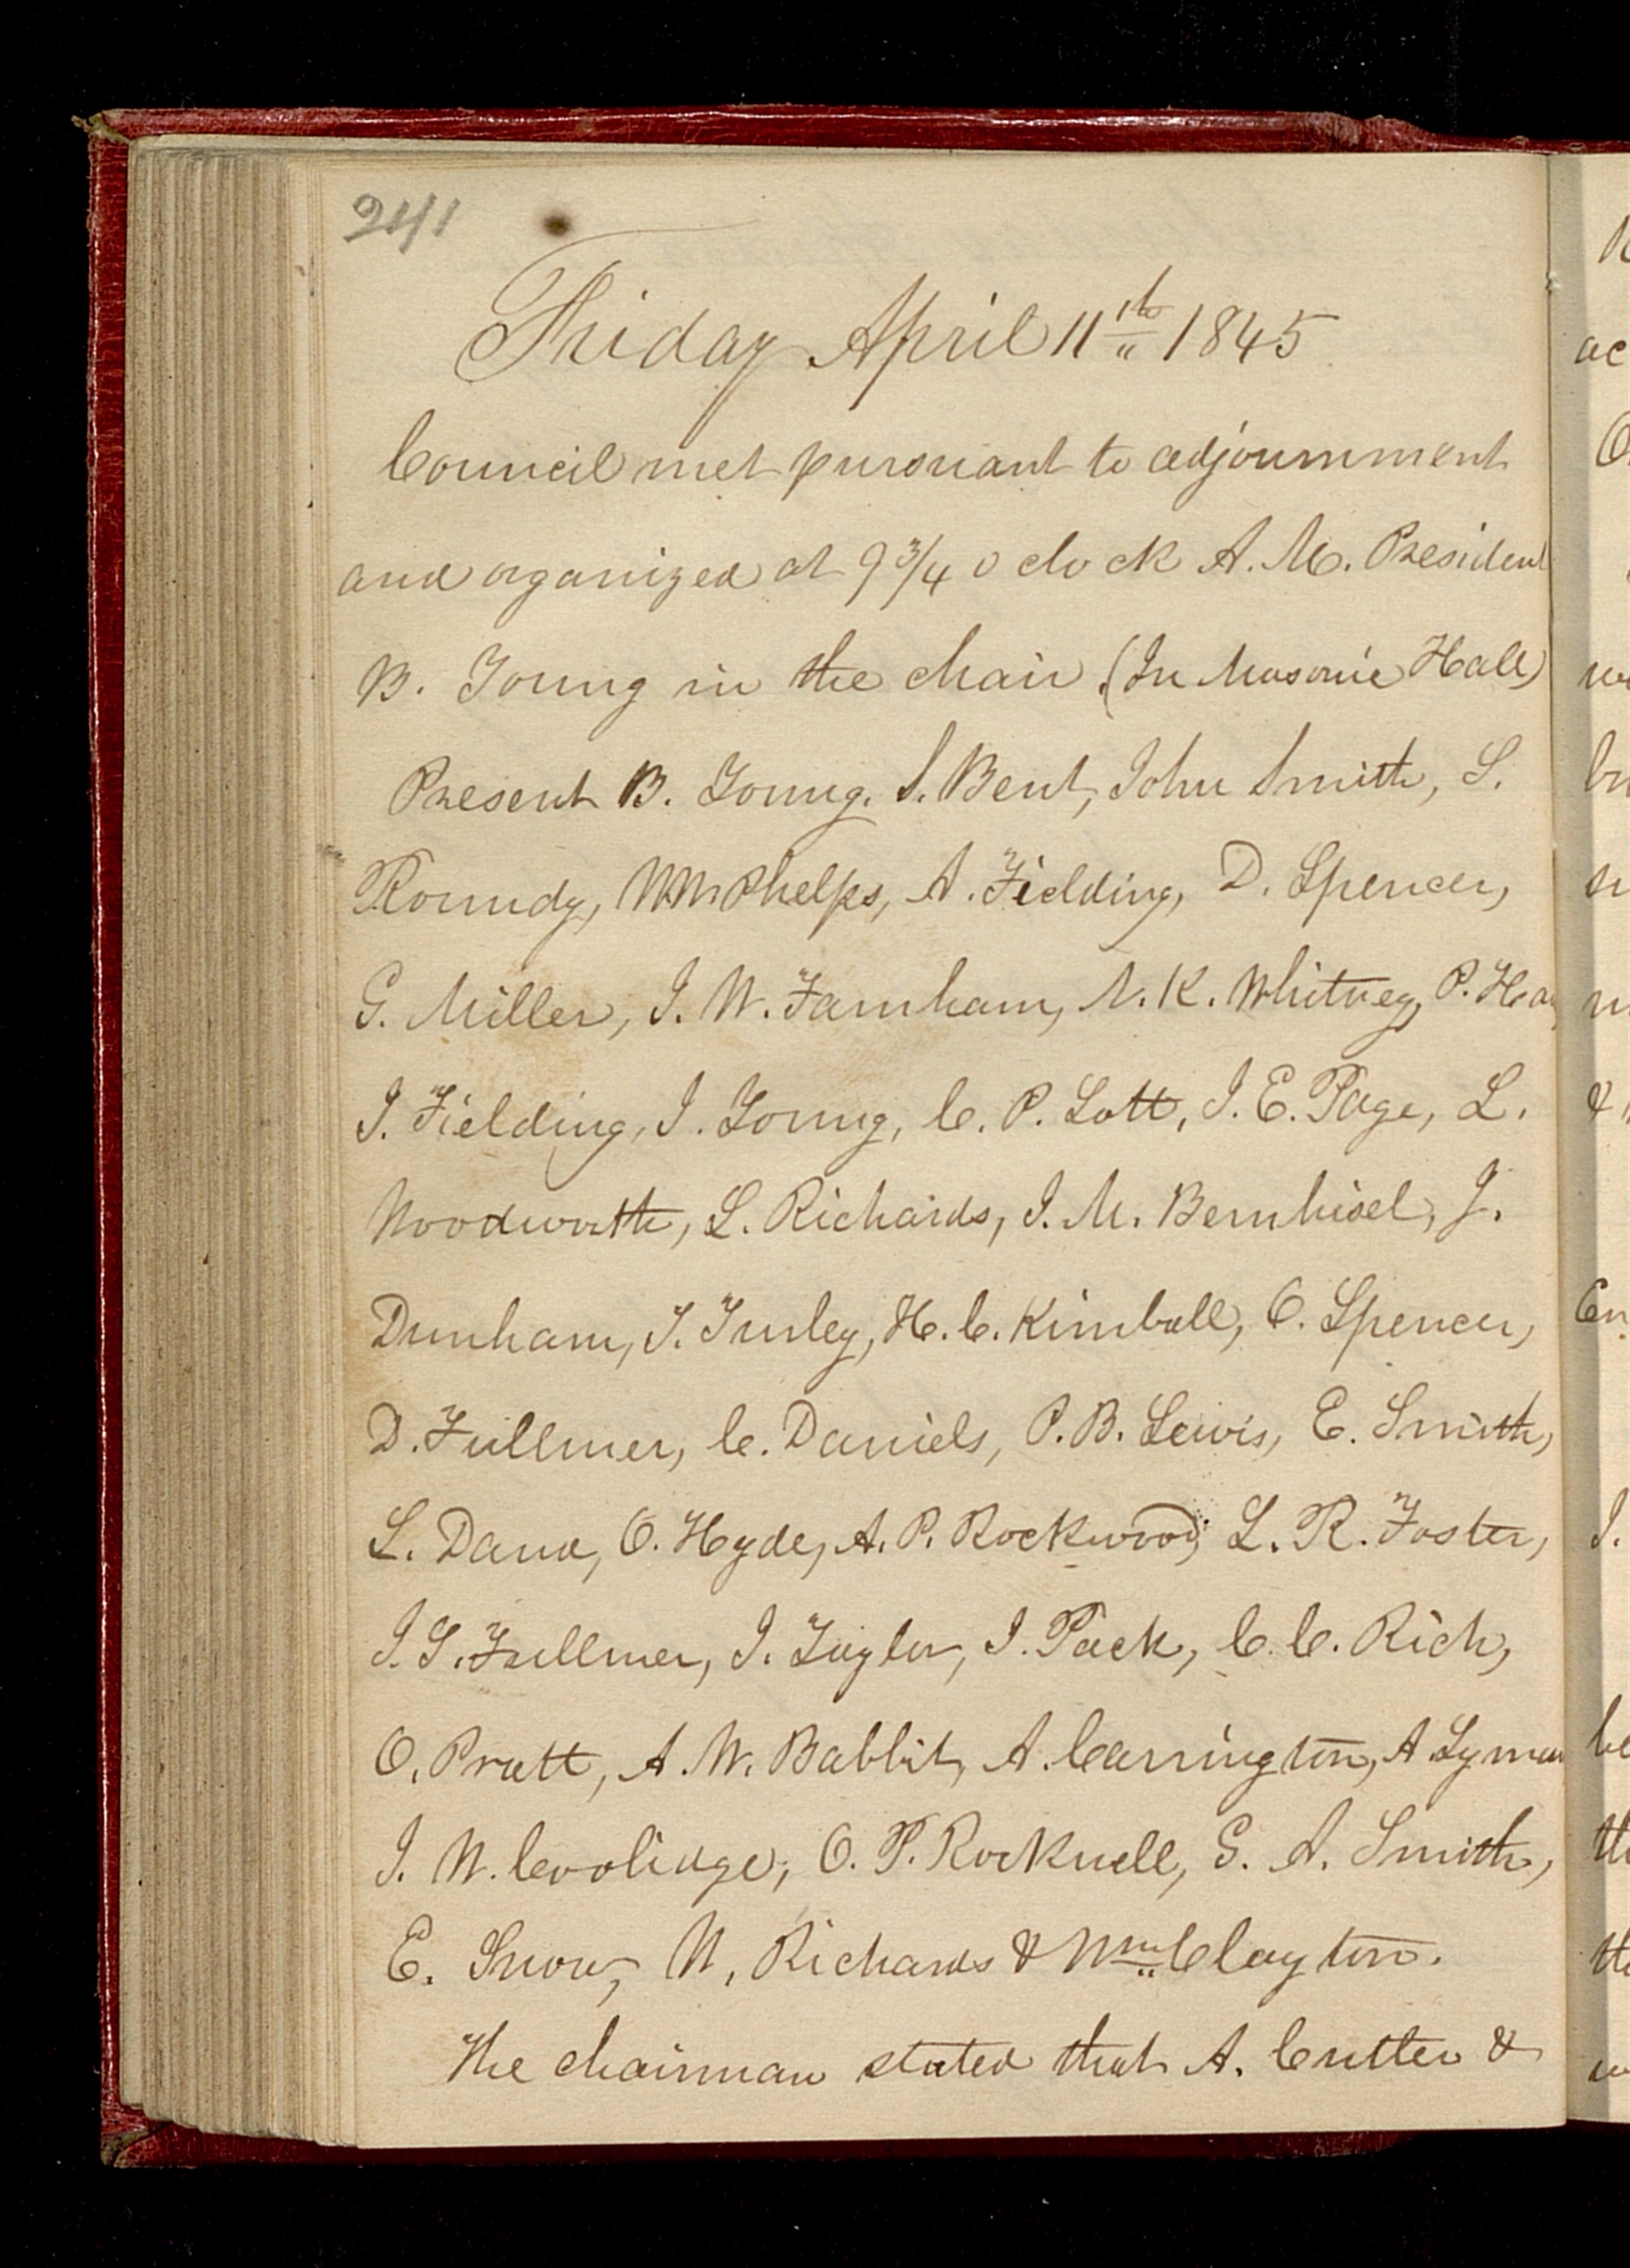 241
Friday April 11th 1845
Council met pursuant to adjournment
and organized at 9 3/4 o clock A. M. President
B. Young in the chair (In Masonic Hall)
Present B. Young. S. Bent, John Smith, S.
Roundy, W W Phelps, A. Fielding, D. Spencer,
G. Miller, J. W. Farnham, N. K. Whitney, P. Haw
J. Fielding, J. Young, C. P. Lott, J. E. Page, L.
Woodworth, L. Richards, J. M. Bernhisel, J.
Dunham, T. Turley, H. C. Kimball, O. Spencer,
D. Fullmer, C. Daniels, P. B. Lewis, E. Smith,
L. Dana, O. Hyde, A. P. Rockwood, L. R. Foster,
J. S. Fullmer, J. Taylor, J. Pack, C. C. Rich,
O. Pratt, A. W. Babbit, A. Carrington, A Lyman
J. W. Coolidge, O. P. Rockwell, G. A. Smith,
E. Snow, W. Richards & Wm Clayton.
The chairman stated that A. Cutler &